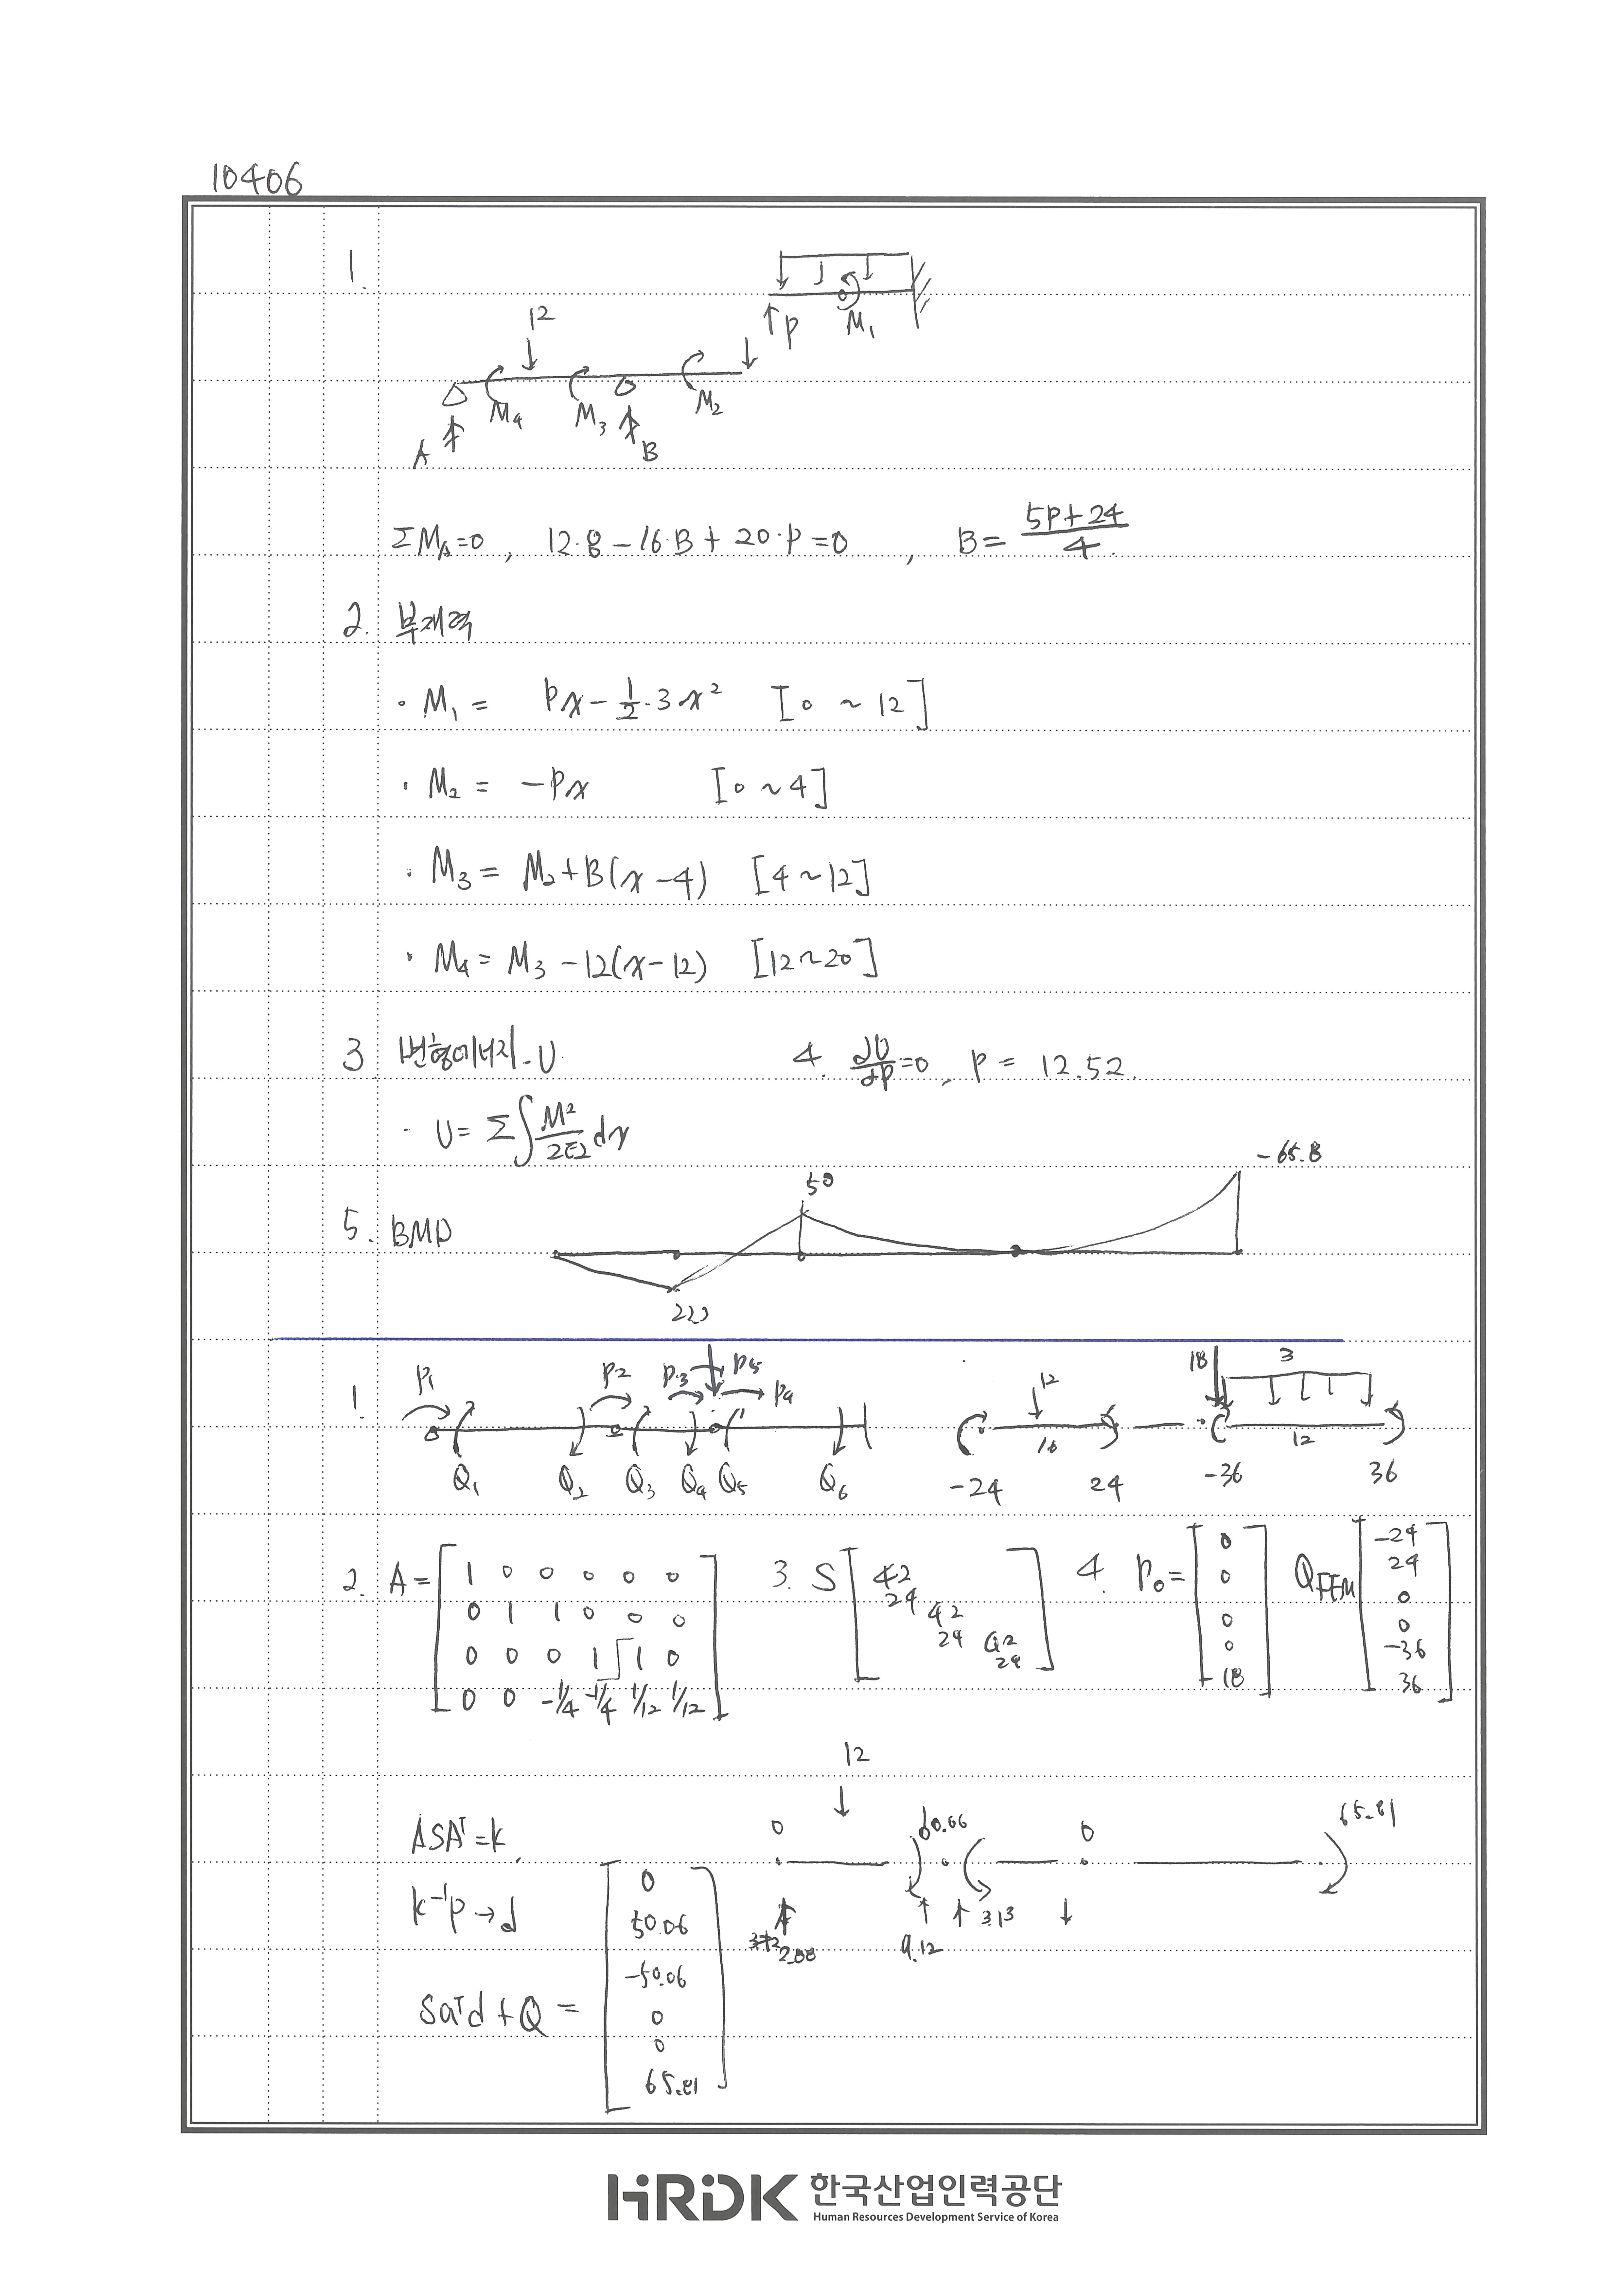 10406
1.
P M₁
12
M₄ M₃ M₂
A B
ΣM_A=0, 12·8-16·B+20·P=0, B= (5P+24)/4
2. 부재력
· M₁ = Px-1/2·3x² [0 ~ 12]
· M₂ = -Px [0 ~ 4]
· M₃ = M₂+B(x-4) [4 ~ 12]
· M₄ = M₃-12(x-12) [12~20]
3 변형에너지-U 4. ∂U/∂P=0, P= 12.52.
· U= Σ∫M²/2EI dx
5. BMD 50 -65.8
1. P₁ P₂ P₃ P₅ P₄
Q₁ Q₂ Q₃ Q₄ Q₅ Q₆
12 16 -24 24
18 3 12 -36 36
2. A= [ 1 0 0 0 0 0
0 1 1 0 0 0
0 0 0 1 1 0
0 0 -1/4 -1/4 1/12 1/12 ]
3. S [ 42
24 42
24 42
24 ]
4. P₀= [ 0 0 0 0 18 ] Q_FEM [ -24 24 0 0 -36 36 ]
12
ASAᵀ=K. 0 0 65.81
K⁻¹P→d
2.88 9.12 3.13
SAᵀd+Q = [ 0 50.06 -50.06 0 0 65.81 ]
HRDK 한국산업인력공단
Human Resources Development Service of Korea